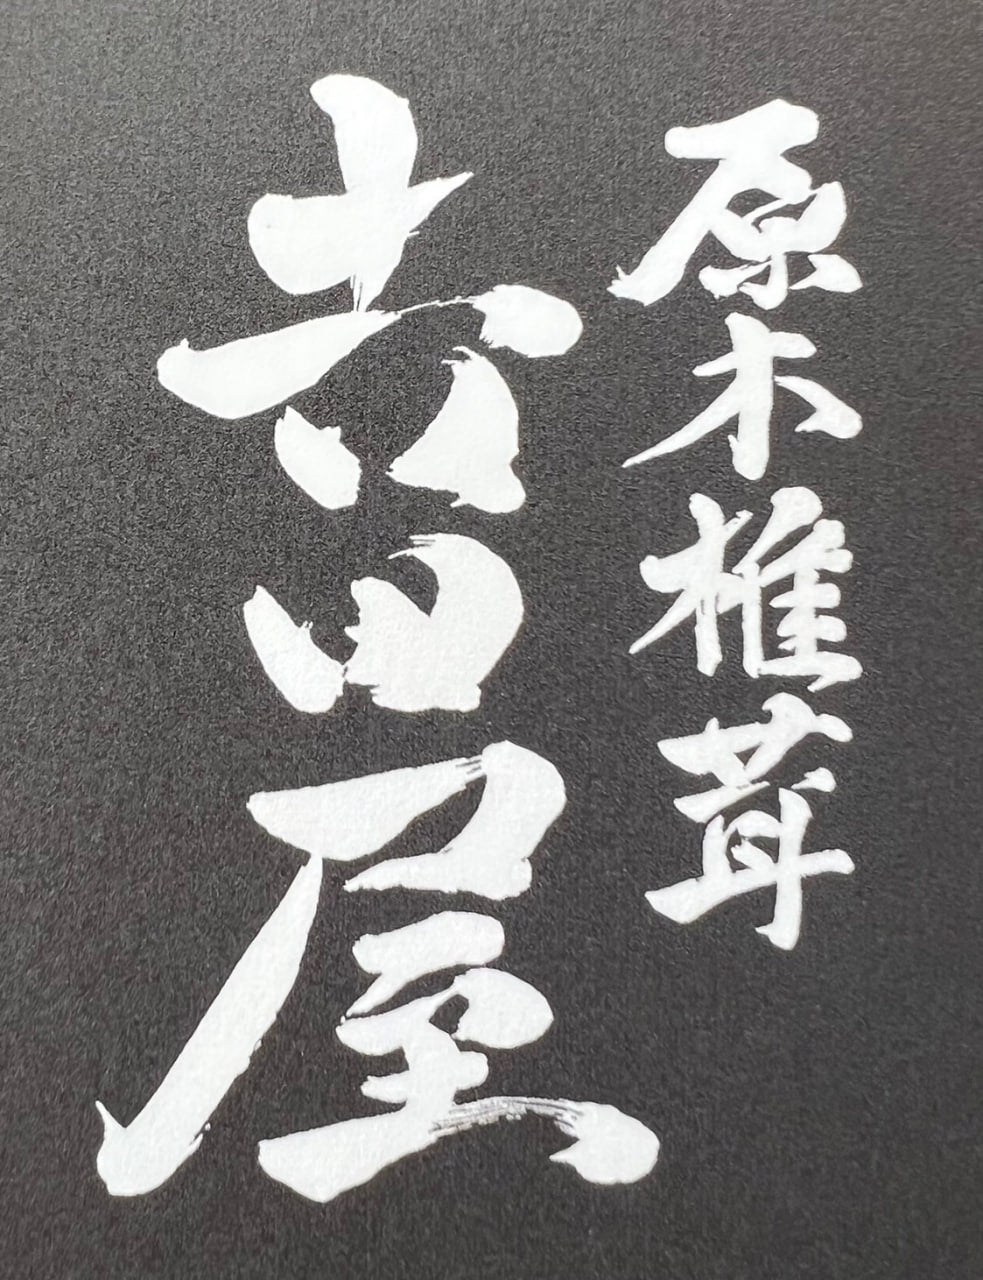 原木椎茸
𠮷田屋